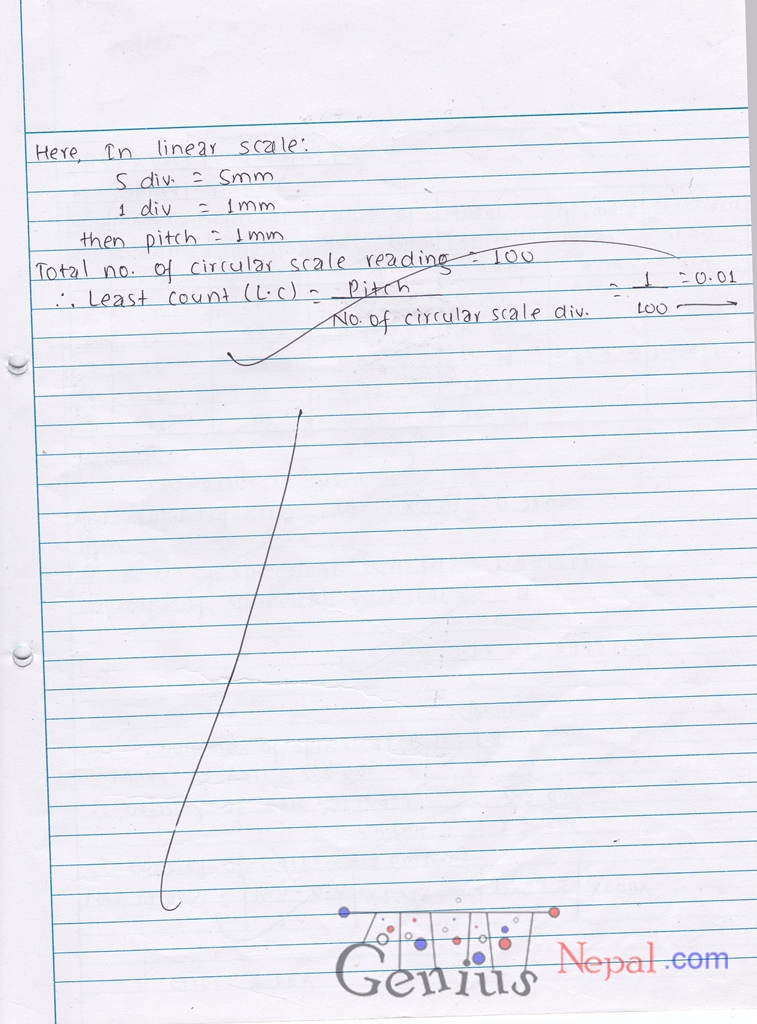 Here, In linear scale:
5 div. = 5mm
1 div = 1mm
then pitch = 1mm
Total no. of circular scale reading = 100
∴ Least count (L.C) = Pitch / No. of circular scale div. = 1 / 100 = 0.01
Genius Nepal.com